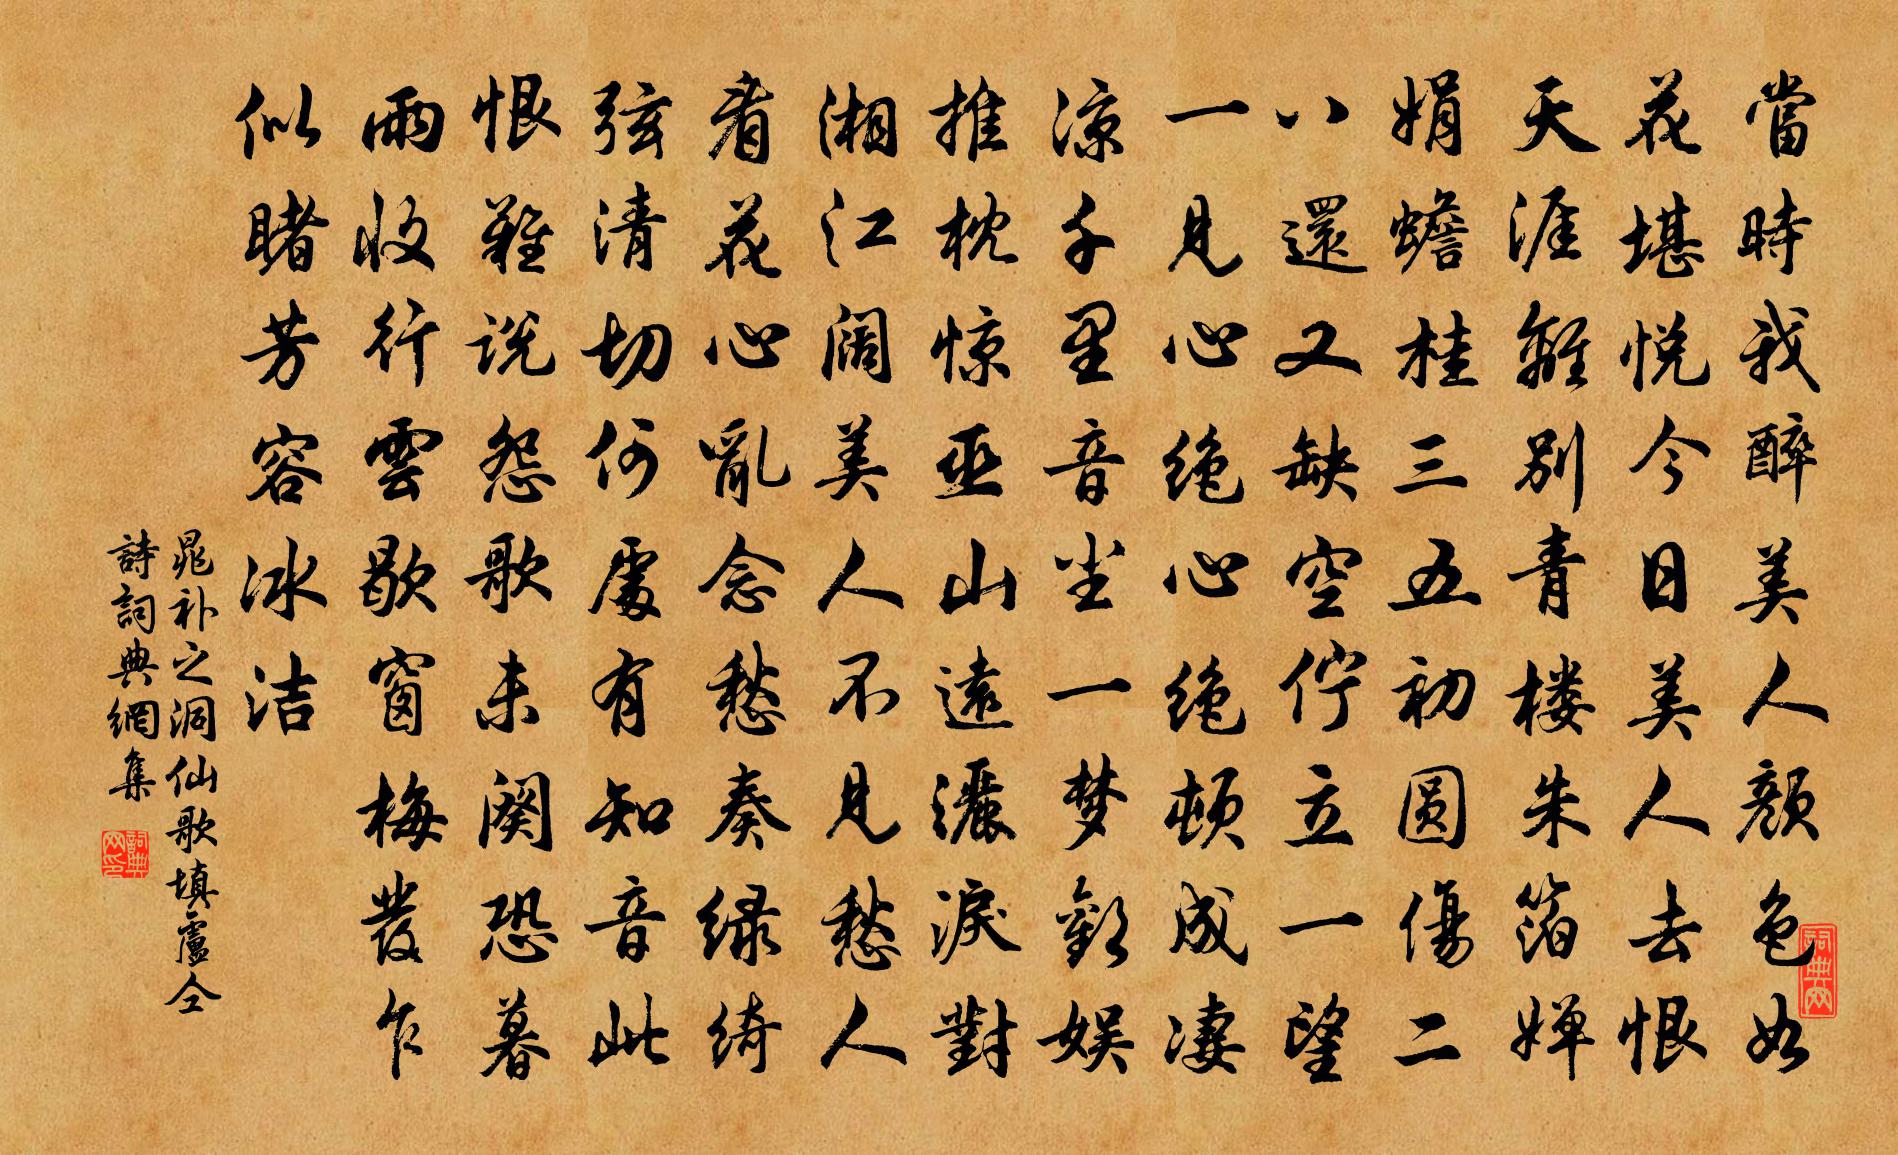 當時我醉美人顏色如
花堪悦今日美人去恨
天涯離别青楼朱箔婵
娟蟾桂三五初圆傷二
八還又缺空佇立一望
一見心绝心绝頓成凄
凉千里音尘一梦歡娱
推枕惊巫山遠灑淚對
湘江阔美人不見愁人
看花心亂念愁奏绿绮
弦清切何處有知音此
恨難说怨歌未阕恐暮
雨收行雲歇窗梅發乍
似睹芳容冰洁
晁补之洞仙歌填盧仝
詩詞典網集
詞典网
詞典网印